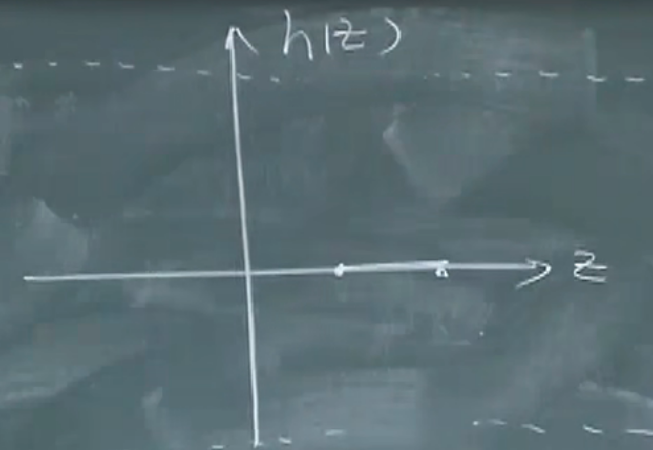 h(z)
z